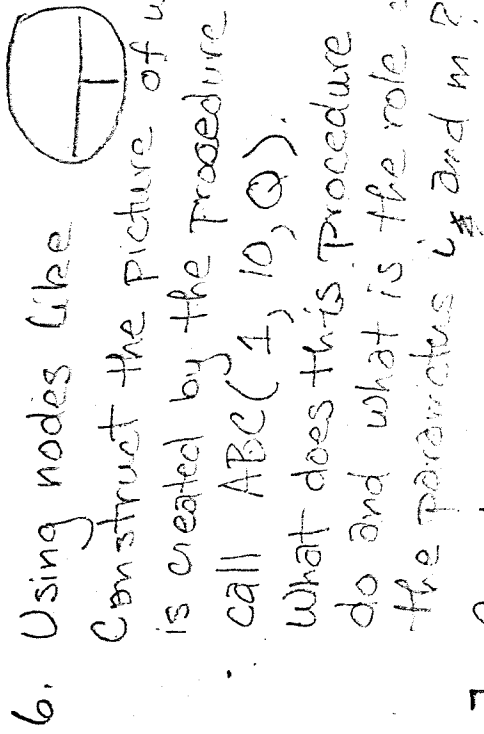 6. Using nodes like
Construct the picture of
is created by the procedure
call ABC(1, 10, Q).
What does this procedure
do and what is the role
the parameters i and m?
7